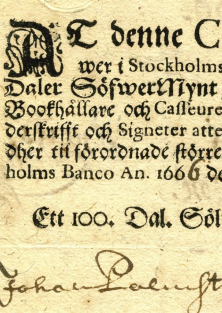 AT denne C
wer i Stockholms
Daler Söfwer Mynt
Bookhållare och Casseure
derskrifft och Signeter atte
dher til förordnade större
holms Banco An. 1666 de
Ett 100. Dal. Söl
Johan Palmst